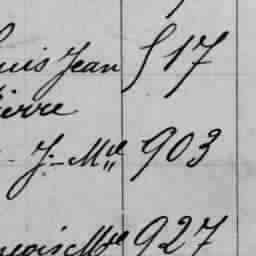 uis Jean 517
ierre
- J. - Mie 903
nçois Mie 927